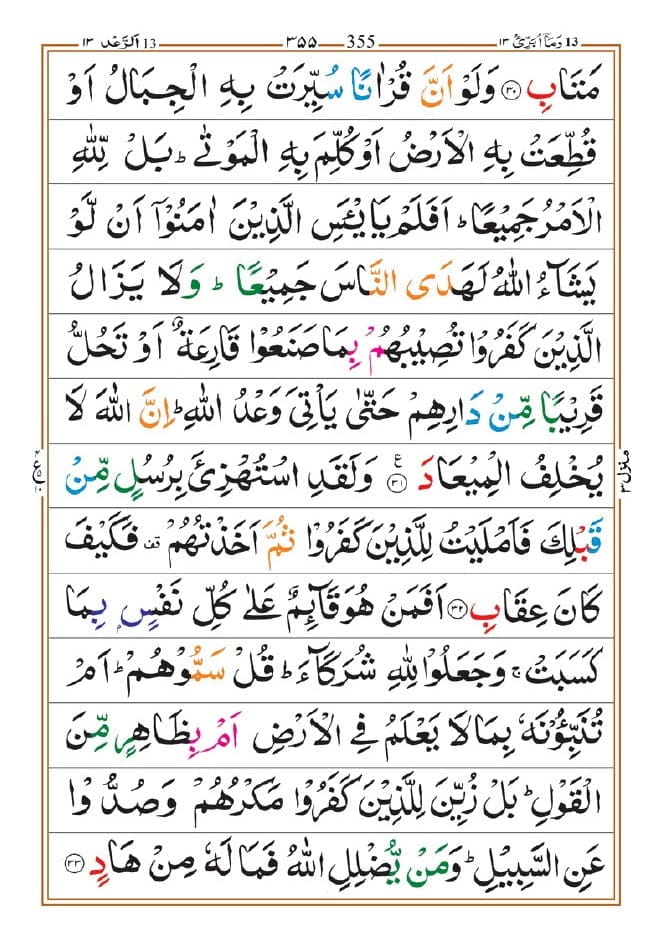 ١٣ اَلرَّعْد 13 ٣٥٥ 355 وَمَاۤ اُبَرِّئُ ١٣ 13
مَتَابِ ۝٣٠ وَلَوْ اَنَّ قُرْاٰنًا سُيِّرَتْ بِهِ الْجِبَالُ اَوْ
قُطِّعَتْ بِهِ الْاَرْضُ اَوْ كُلِّمَ بِهِ الْمَوْتٰى ؕ بَلْ لِّلّٰهِ
الْاَمْرُ جَمِيْعًا ؕ اَفَلَمْ يَايْـَٔسِ الَّذِيْنَ اٰمَنُوْۤا اَنْ لَّوْ
يَشَآءُ اللّٰهُ لَهَدَى النَّاسَ جَمِيْعًا ؕ وَلَا يَزَالُ
الَّذِيْنَ كَفَرُوْا تُصِيْبُهُمْ بِمَا صَنَعُوْا قَارِعَةٌ اَوْ تَحُلُّ
قَرِيْبًا مِّنْ دَارِهِمْ حَتّٰى يَاْتِىَ وَعْدُ اللّٰهِ ؕ اِنَّ اللّٰهَ لَا
يُخْلِفُ الْمِيْعَادَ ۝٣١ ع وَلَقَدِ اسْتُهْزِئَ بِرُسُلٍ مِّنْ
قَبْلِكَ فَاَمْلَيْتُ لِلَّذِيْنَ كَفَرُوْا ثُمَّ اَخَذْتُهُمْ قف فَكَيْفَ
كَانَ عِقَابِ ۝٣٢ اَفَمَنْ هُوَ قَآئِمٌ عَلٰى كُلِّ نَفْسٍۭ بِمَا
كَسَبَتْ ۚ وَجَعَلُوْا لِلّٰهِ شُرَكَآءَ ؕ قُلْ سَمُّوْهُمْ ؕ اَمْ
تُنَبِّـُٔوْنَهٗ بِمَا لَا يَعْلَمُ فِى الْاَرْضِ اَمْ بِظَاهِرٍ مِّنَ
الْقَوْلِ ؕ بَلْ زُيِّنَ لِلَّذِيْنَ كَفَرُوْا مَكْرُهُمْ وَصُدُّوْا
عَنِ السَّبِيْلِ ؕ وَمَنْ يُّضْلِلِ اللّٰهُ فَمَا لَهٗ مِنْ هَادٍ ۝٣٣
منزل ٣